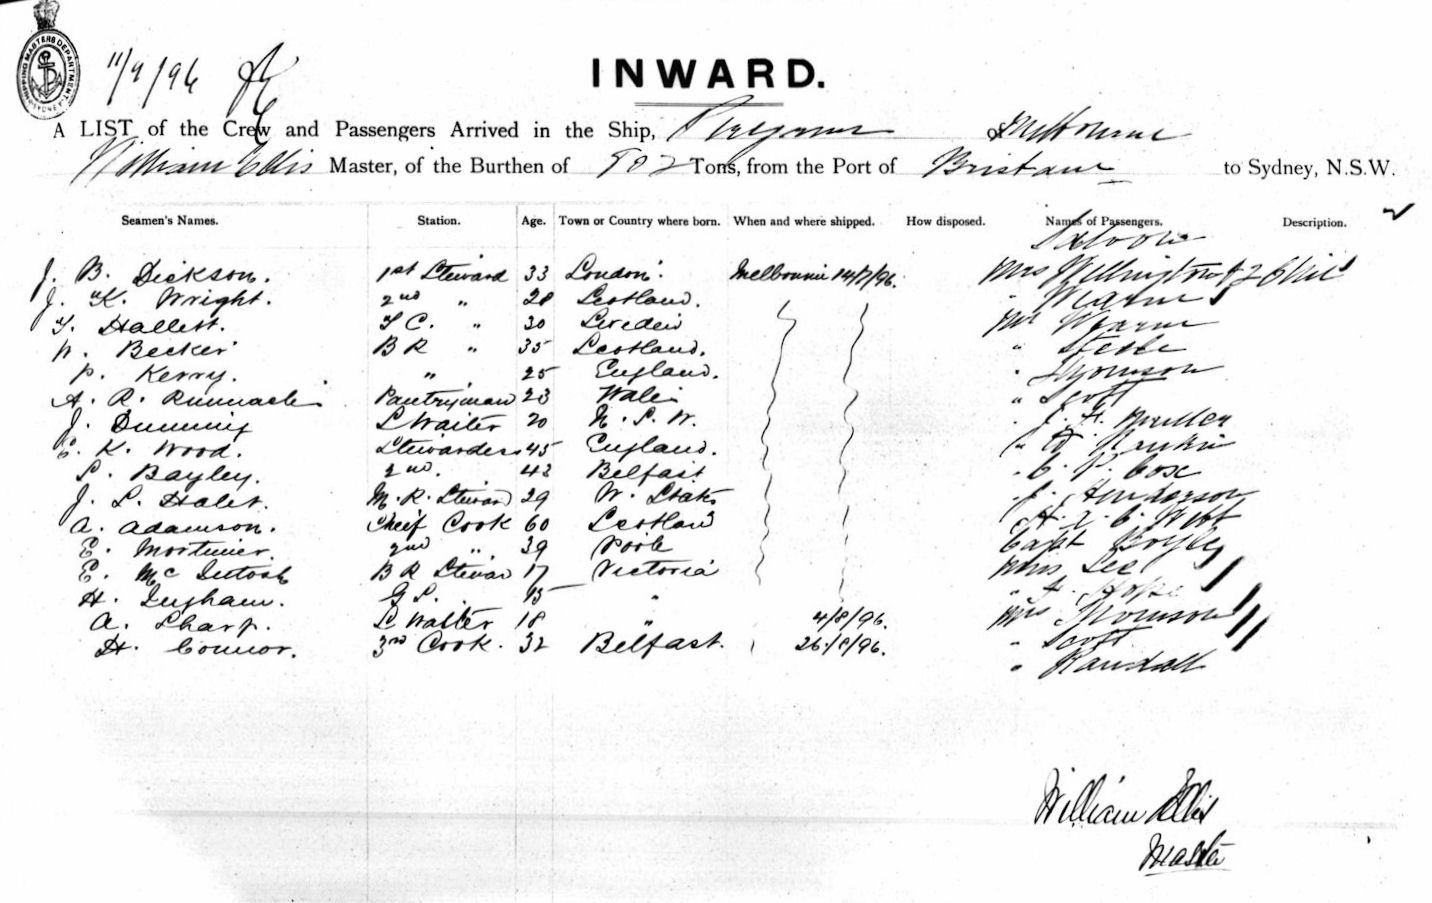 SHIPPING MASTERS DEPARTMENT SYDNEY
11/9/96
INWARD.
A LIST of the Crew and Passengers Arrived in the Ship, Peregrine of Melbourne
William Ellis Master, of the Burthen of Tons, from the Port of Brisbane to Sydney, N.S.W.
Seamen's Names. Station. Age. Town or Country where born. When and where shipped. How disposed. Names of Passengers. Description.
Saloon
J. B. Dickson. 1st Steward 33 London. Melbourne 14/7/96. Mrs
J. K. Wright. 2nd " 28 Scotland. " Wearne
T. Hallett. " 30 Mr Wearne
W. Becker B R " 35 Scotland. "
P. Kerry. " 25 England. " Thomson
A. R. Pantryman 23 Wales " Scott
J. Dunning S Waiter 20 N. S. W. " J. H. Muller
E. K. Wood. Stewardess 45 England. " Rankin
S. Bayley. 2nd. 42 Belfast " C. P. Cox
J. S. Halet. M. R. Steward 29 W. States " J. Henderson
A. Adamson. Cheif Cook 60 Scotland
E. Mortimer. 2nd " 39 Poole Capt
E. Mc Intosh B R Steward 17 Victoria Miss Lee
H. Ingham. G S. 15 " "
A. Sharp. S Waiter 18 " 4/8/96. Mrs Thomson
H. Connor. 3rd Cook. 32 Belfast. 26/8/96. " Scott
" Randall
William Ellis
Master